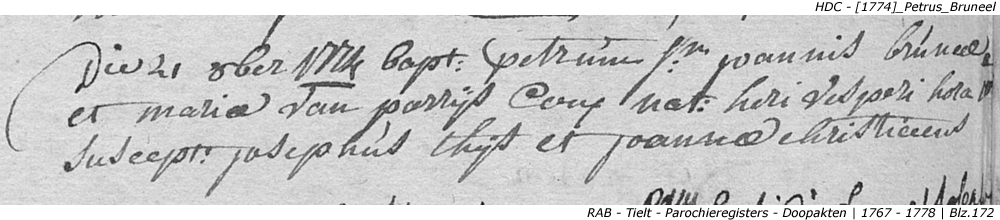 HDC - [1774]_Petrus_Bruneel
Die 21 8ber 1774 bapt: petrum f.m joannis bruneel
et mariæ van parrijs Conj nat: heri vesperi hora
suscept: josephus thijs et joannæ christiaens
RAB - Tielt - Parochieregisters - Doopakten | 1767 - 1778 | Blz.172